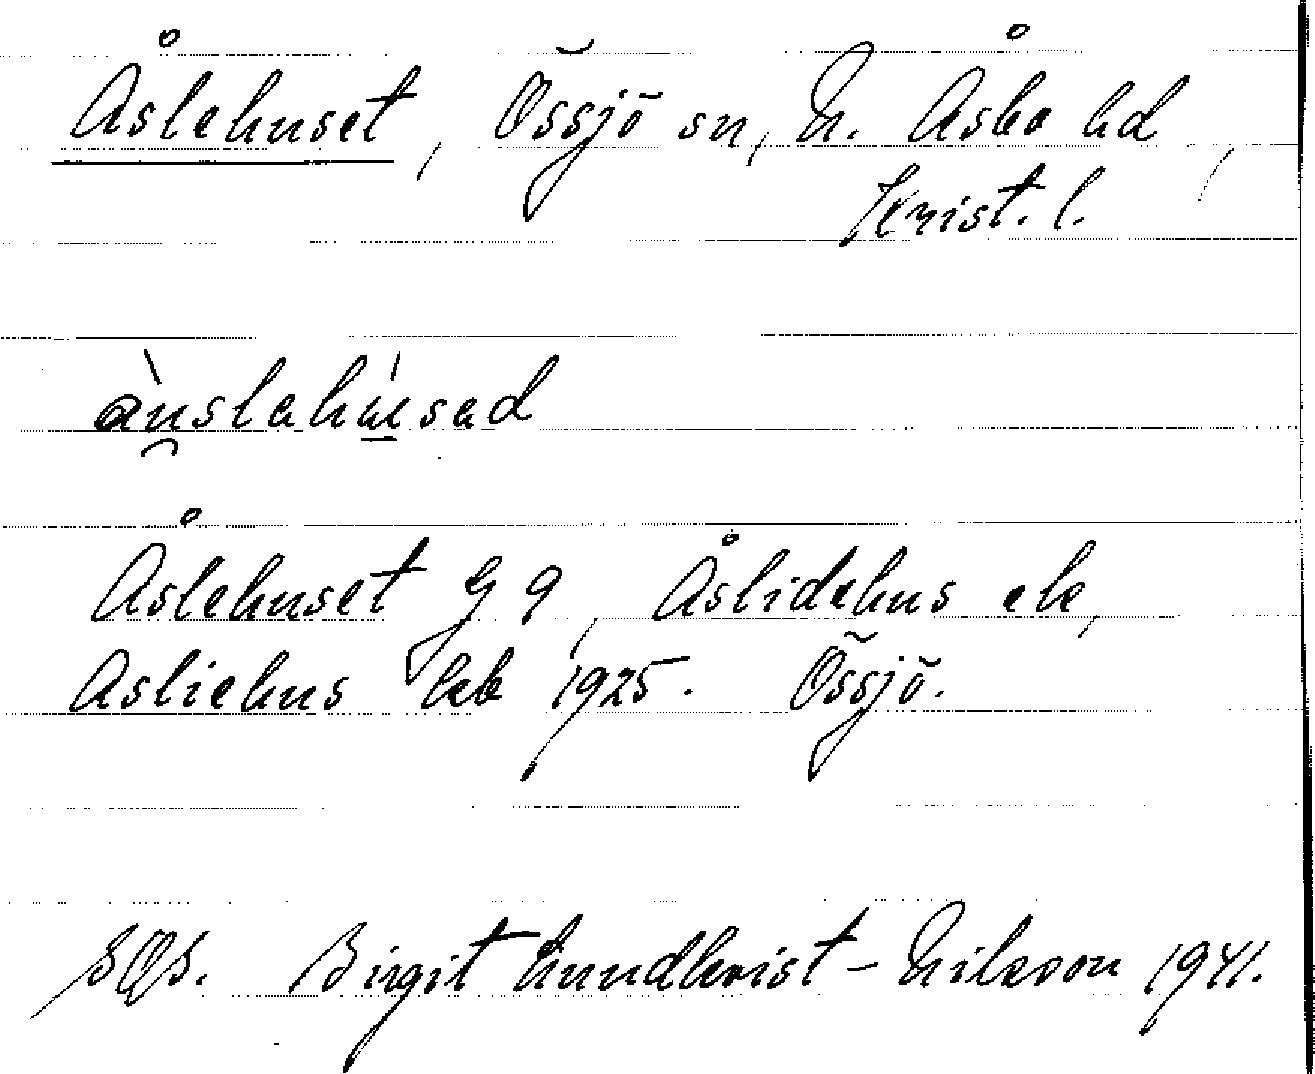 Åslehuset, Össjö sn, N. Åsbo hd,
Krist. l.
Åslehuset G 9, Åslidehus ek,
Asliehus kb 1925. Össjö.
SOS. Birgit Lundkvist-Nilsson 1941.